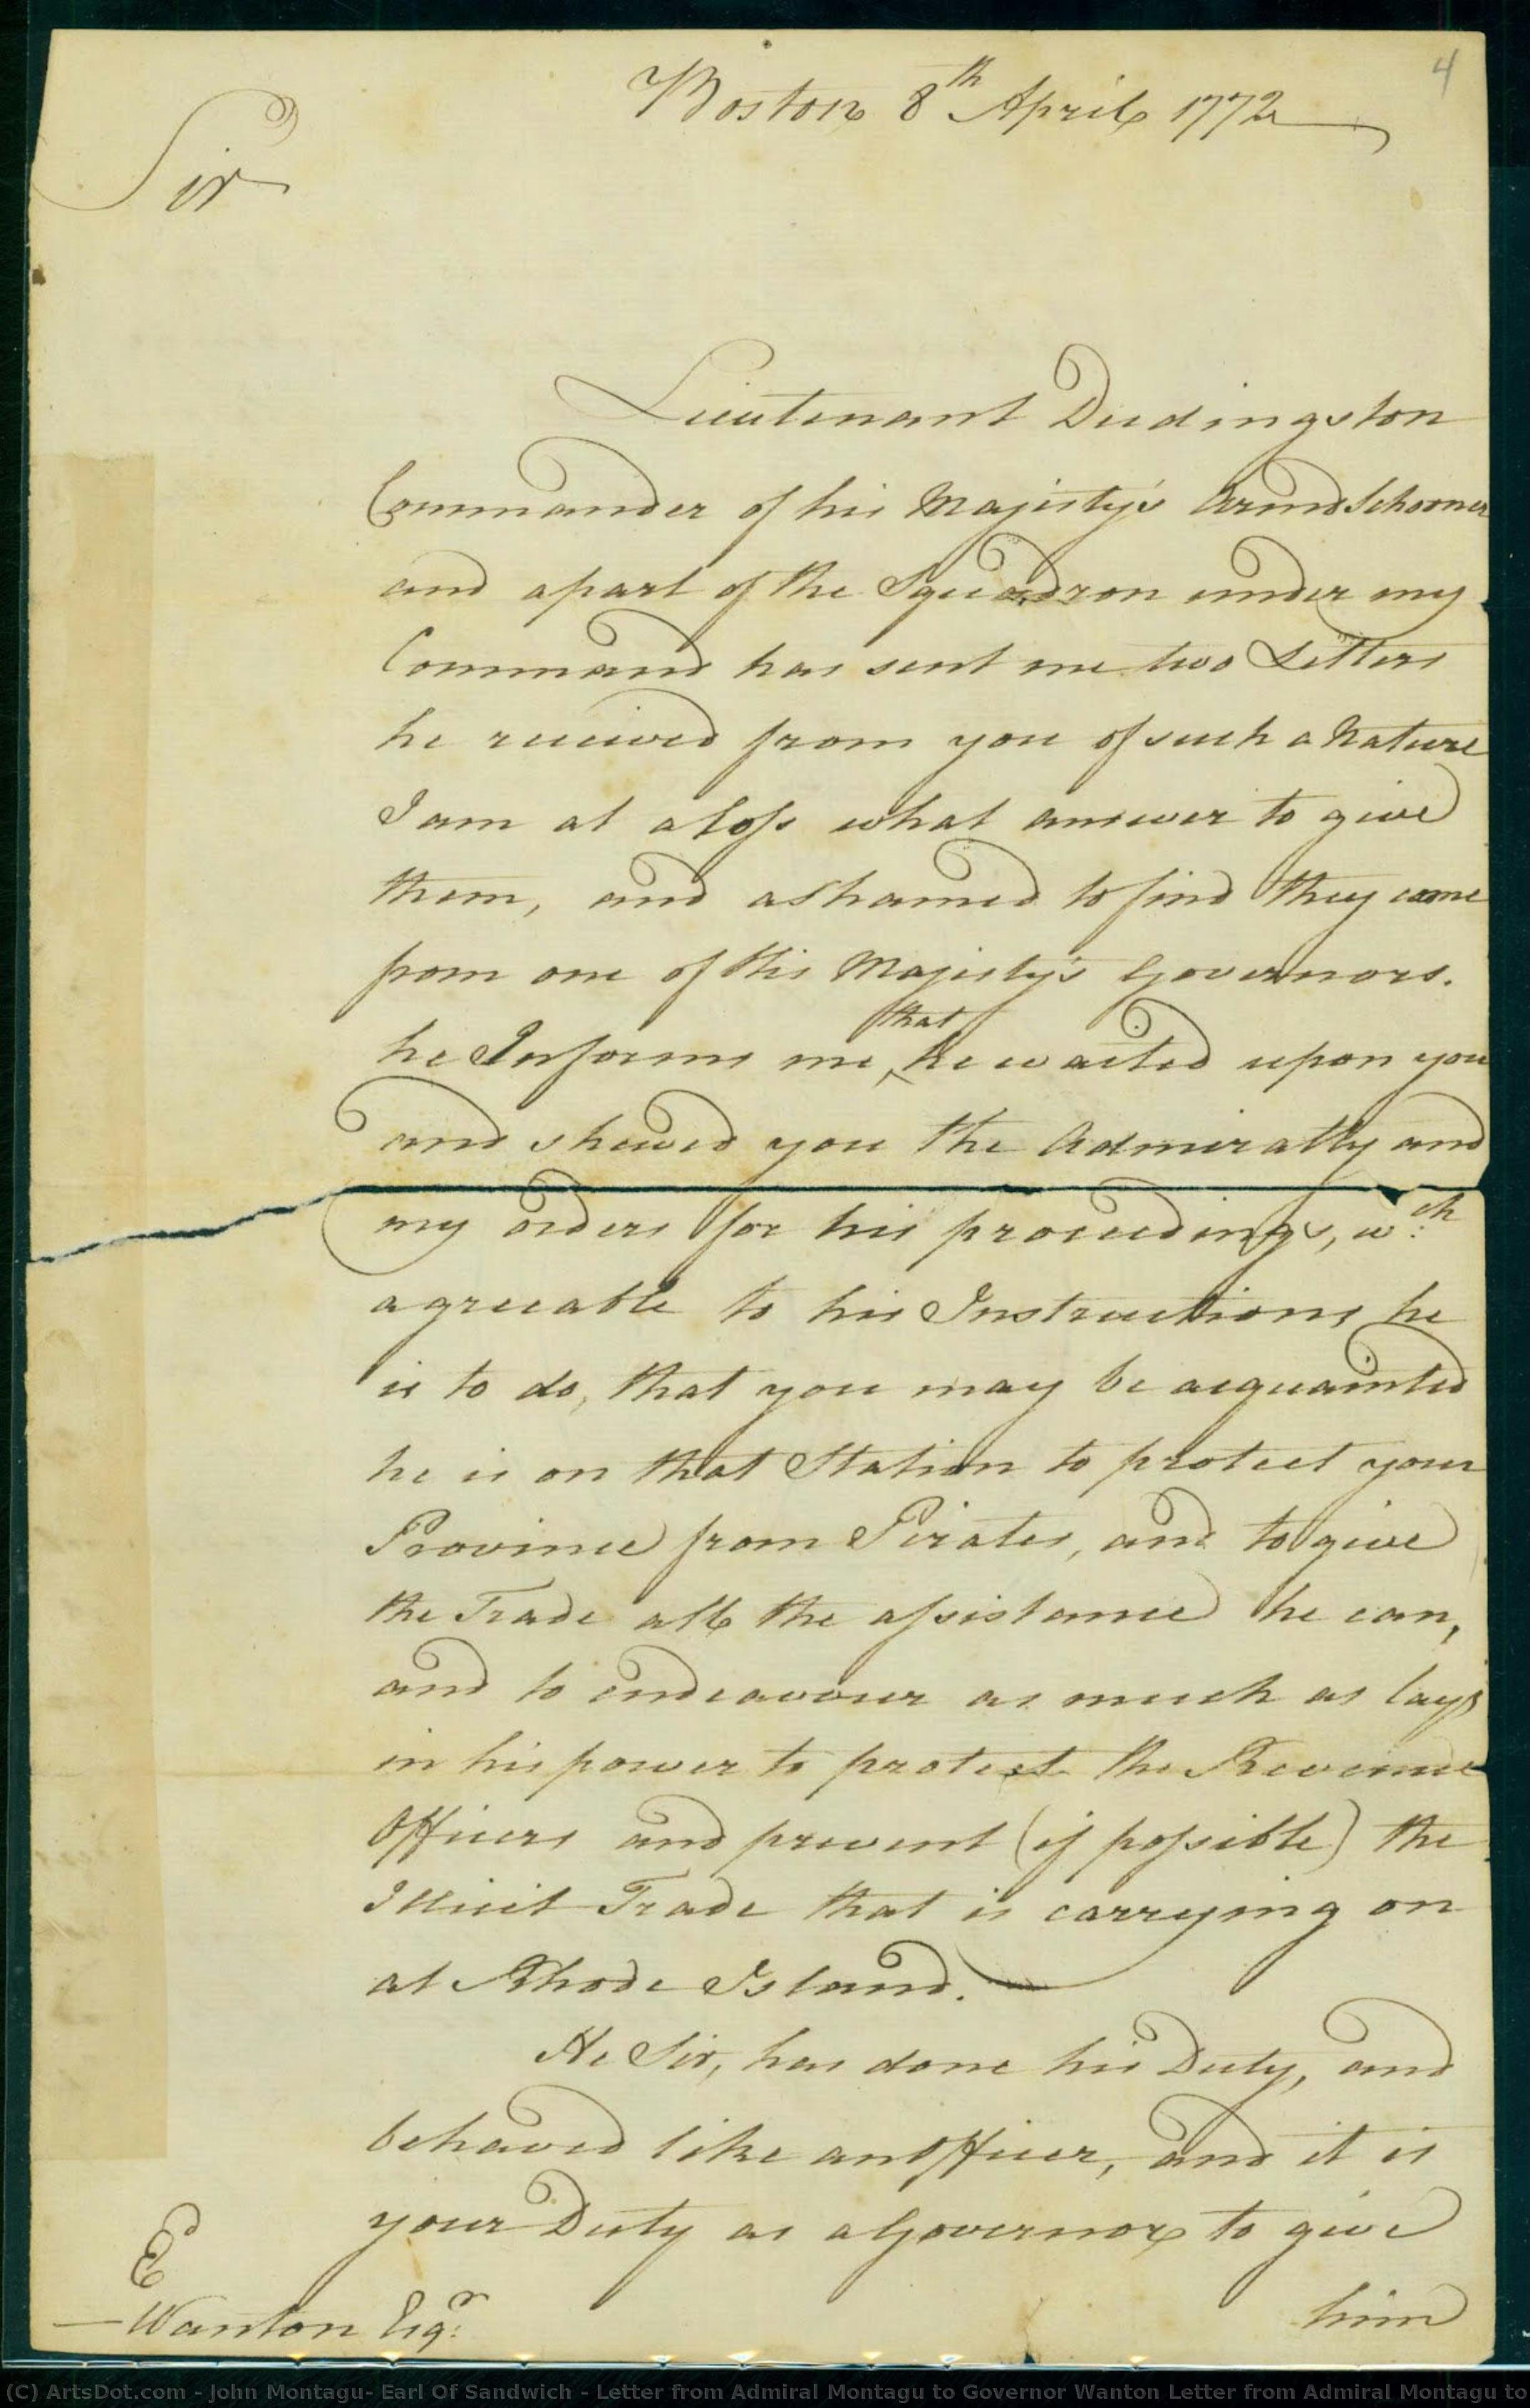 4
Boston 8th April 1772
Sir
Lieutenant Dudingston
Commander of his Majesty's Armd Schooner
and apart of the Squadron under my
Command has sent me two Letters
he received from you of such a Nature
I am at a loss what answer to give
them, and ashamed to find they come
from one of His Majesty's Governors.
that
he Informs me, he waited upon you
and shewed you the Admiralty and
my orders for his proceedings, wch
agreeable to his Instructions he
is to do, that you may be acquainted
he is on that Station to protect your
Province from Pirates, and to give
the Trade all the assistance he can,
and to endeavour as much as lays
in his power to protect the Revenue
Officers and prevent (if possible) the
Illicit Trade that is carrying on
at Rhode Island.
He Sir, has done his Duty, and
behaved like an Officer, and it is
your Duty as a Governor to give
him
— Wanton Esqr
(C) ArtsDot.com - John Montagu- Earl Of Sandwich - Letter from Admiral Montagu to Governor Wanton Letter from Admiral Montagu to